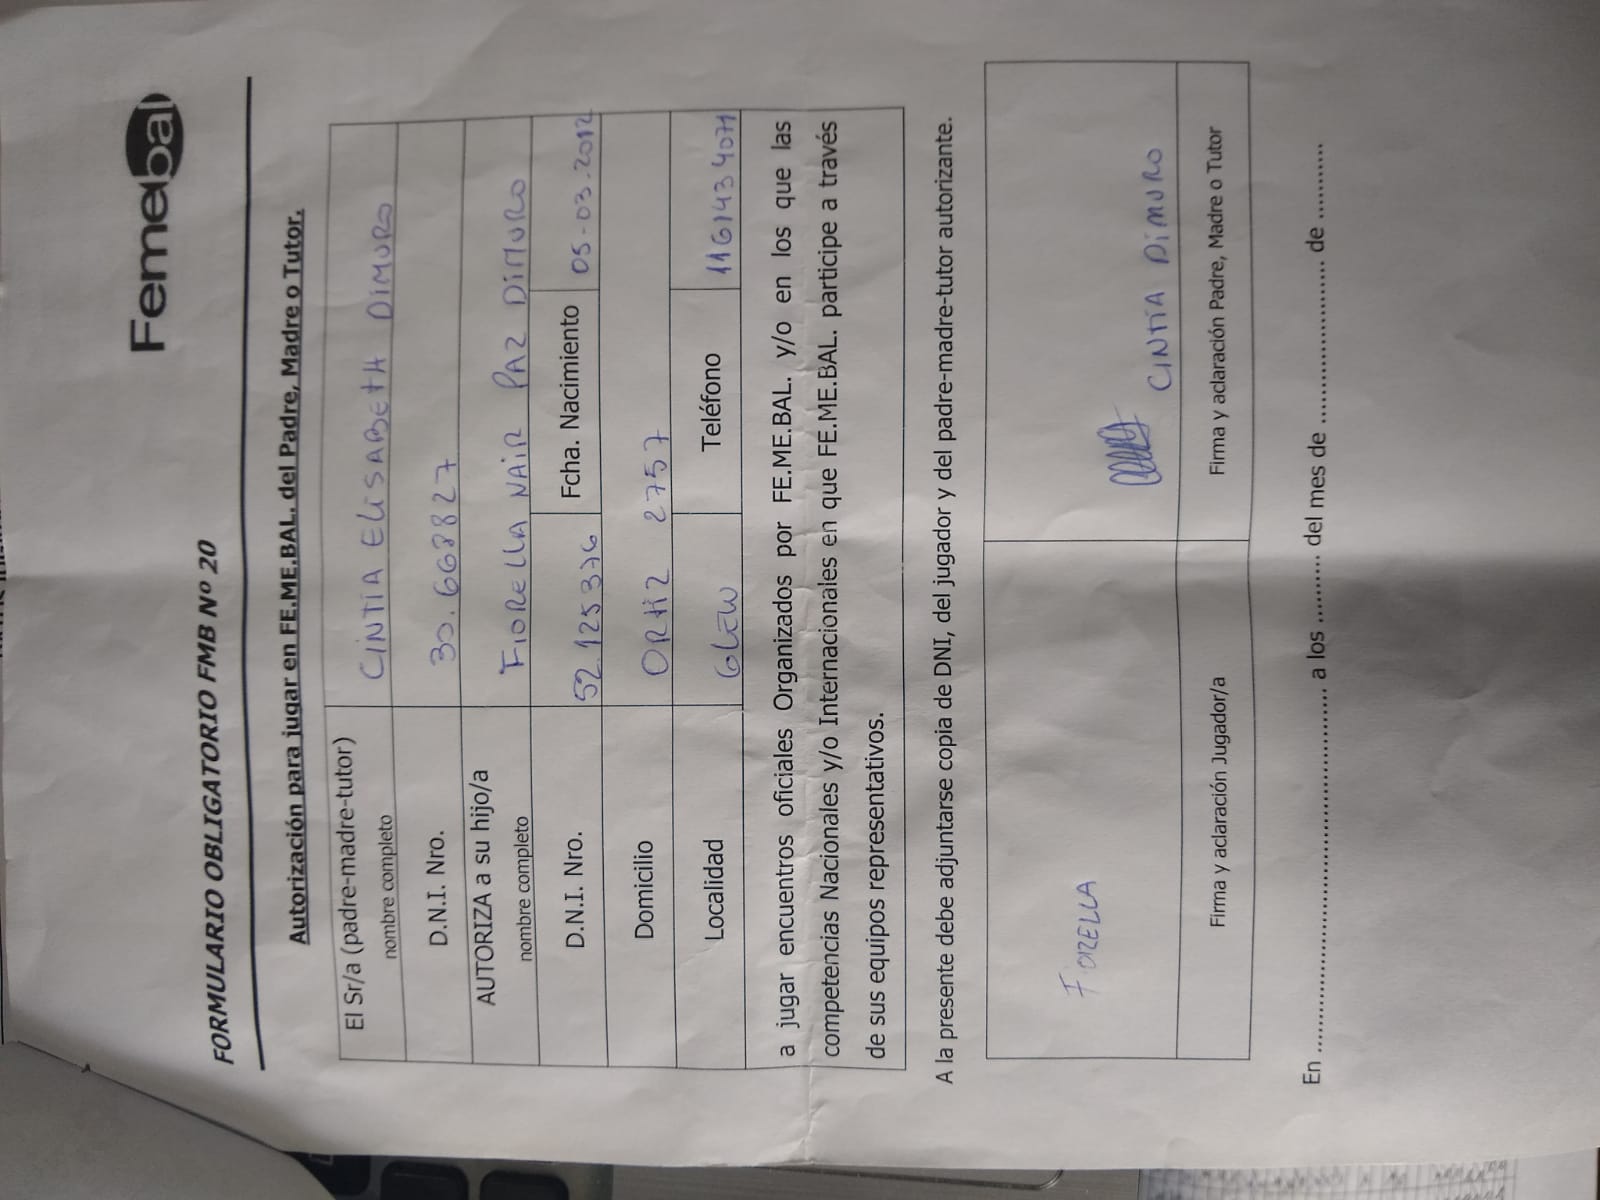 Femebal
FORMULARIO OBLIGATORIO FMB Nº 20
Autorización para jugar en FE.ME.BAL. del Padre, Madre o Tutor.
El Sr/a (padre-madre-tutor)
nombre completo
CINTIA ELISABETH DIMURO
D.N.I. Nro. 30.668827
AUTORIZA a su hijo/a
nombre completo
FIORELLA NAIR PAZ DIMURO
D.N.I. Nro. 52.125376 Fcha. Nacimiento 05-03.2012
Domicilio ORTIZ 2757
Localidad GLEW Teléfono 1161434071
a jugar encuentros oficiales Organizados por FE.ME.BAL. y/o en los que las
competencias Nacionales y/o Internacionales en que FE.ME.BAL. participe a través
de sus equipos representativos.
A la presente debe adjuntarse copia de DNI, del jugador y del padre-madre-tutor autorizante.
FIORELLA
CINTIA DIMURO
Firma y aclaración Jugador/a Firma y aclaración Padre, Madre o Tutor
En ................................................ a los ......... del mes de ........................ de .........